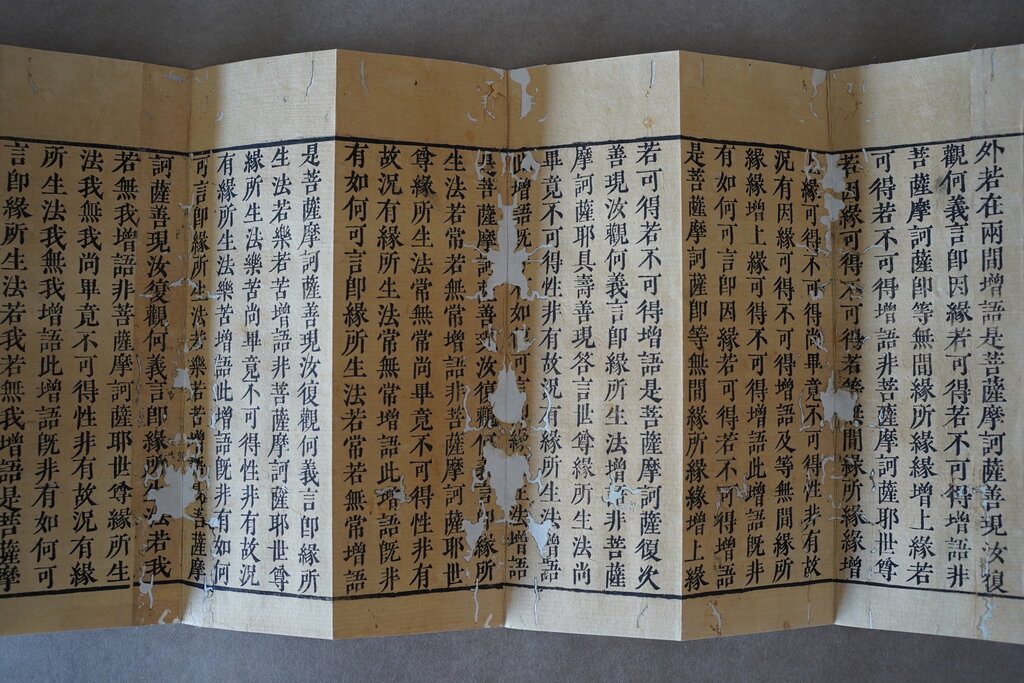 外若在兩間增語是菩薩摩訶薩善現汝復
觀何義言即因緣若可得若不可得增語非
菩薩摩訶薩即等無間緣所緣緣增上緣若
可得若不可得增語非菩薩摩訶薩耶世尊
若因緣可得不可得若等無間緣所緣緣增
上緣可得不可得尚畢竟不可得性非有故
況有因緣可得不可得增語及等無間緣所
緣緣增上緣可得不可得增語此增語既非
有如何可言即因緣若可得若不可得增語
是菩薩摩訶薩即等無間緣所緣緣增上緣
若可得若不可得增語是菩薩摩訶薩復次
善現汝觀何義言即緣所生法增語非菩薩
摩訶薩耶具壽善現答言世尊緣所生法尚
畢竟不可得性非有故況有緣所生法增語
增語既有如何可言緣生法增語
是菩薩摩訶善現汝復觀何言緣所
生法若常若無常增語非菩薩摩訶薩耶世
尊緣所生法常無常尚畢竟不可得性非有
故況有緣所生法常無常增語此增語既非
有如何可言即緣所生法若常若無常增語
是菩薩摩訶薩善現汝復觀何義言即緣所
生法若樂若苦增語非菩薩摩訶薩耶世尊
緣所生法樂苦尚畢竟不可得性非有故況
有緣所生法樂苦增語此增語既非有如何
可言即緣所生法若樂若苦增語是菩薩摩
訶薩善現汝復觀何義言即緣所法若我
若無我增語非菩薩摩訶薩耶世尊緣所生
法我無我尚畢竟不可得性非有故況有緣
所生法我無我增語此增語既非有如何可
言即緣所生法若我若無我增語是菩薩摩